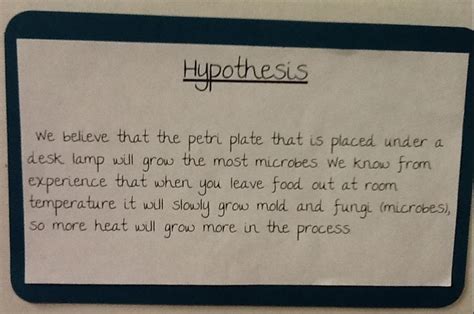 Hypothesis
We believe that the petri plate that is placed under a
desk lamp will grow the most microbes We know from
experience that when you leave food out at room
temperature it will slowly grow mold and fungi (microbes),
so more heat will grow more in the process